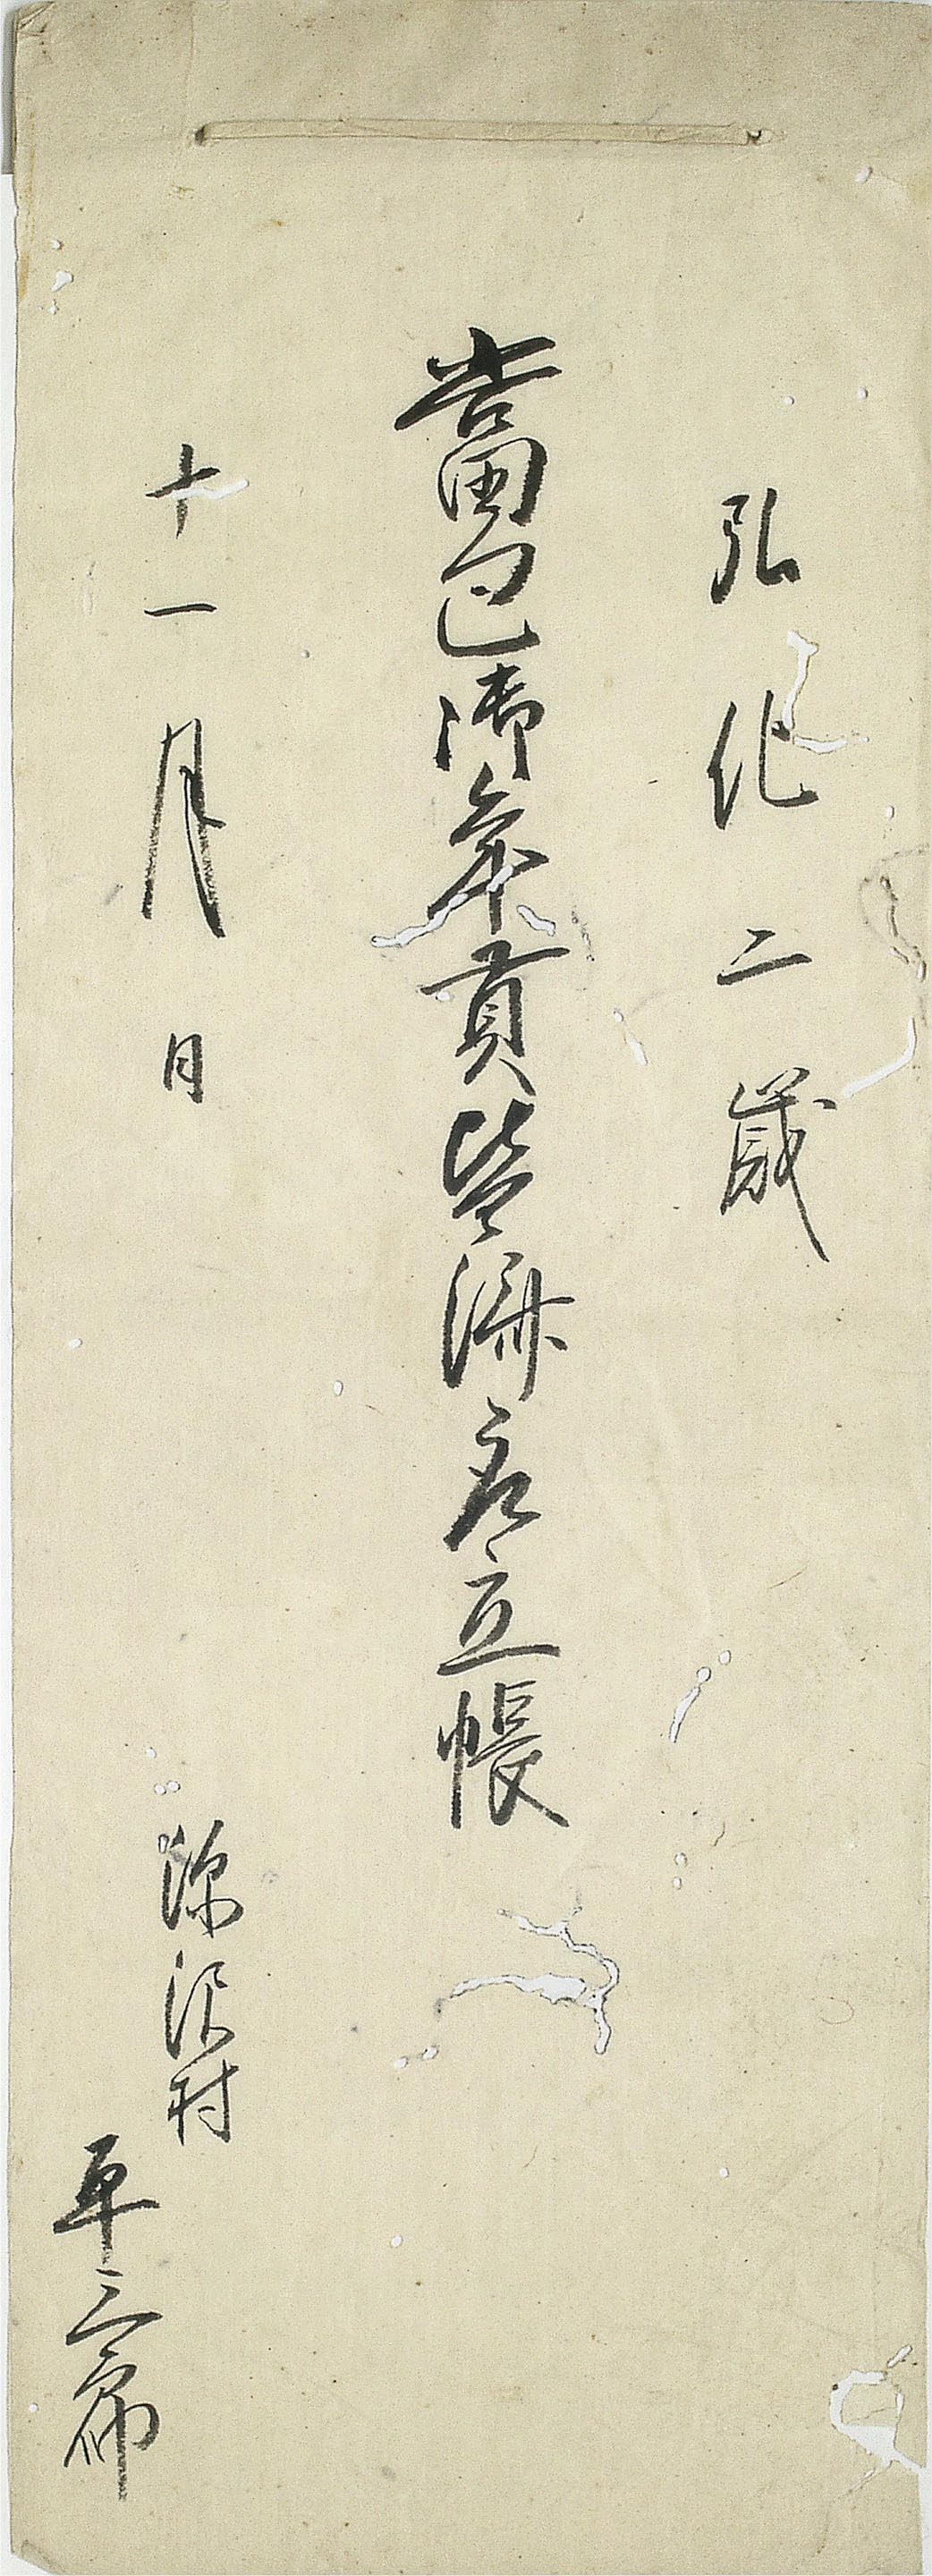 弘化二歳
當巳御年貢皆済名立帳
十一月日
深沢村
平三郎